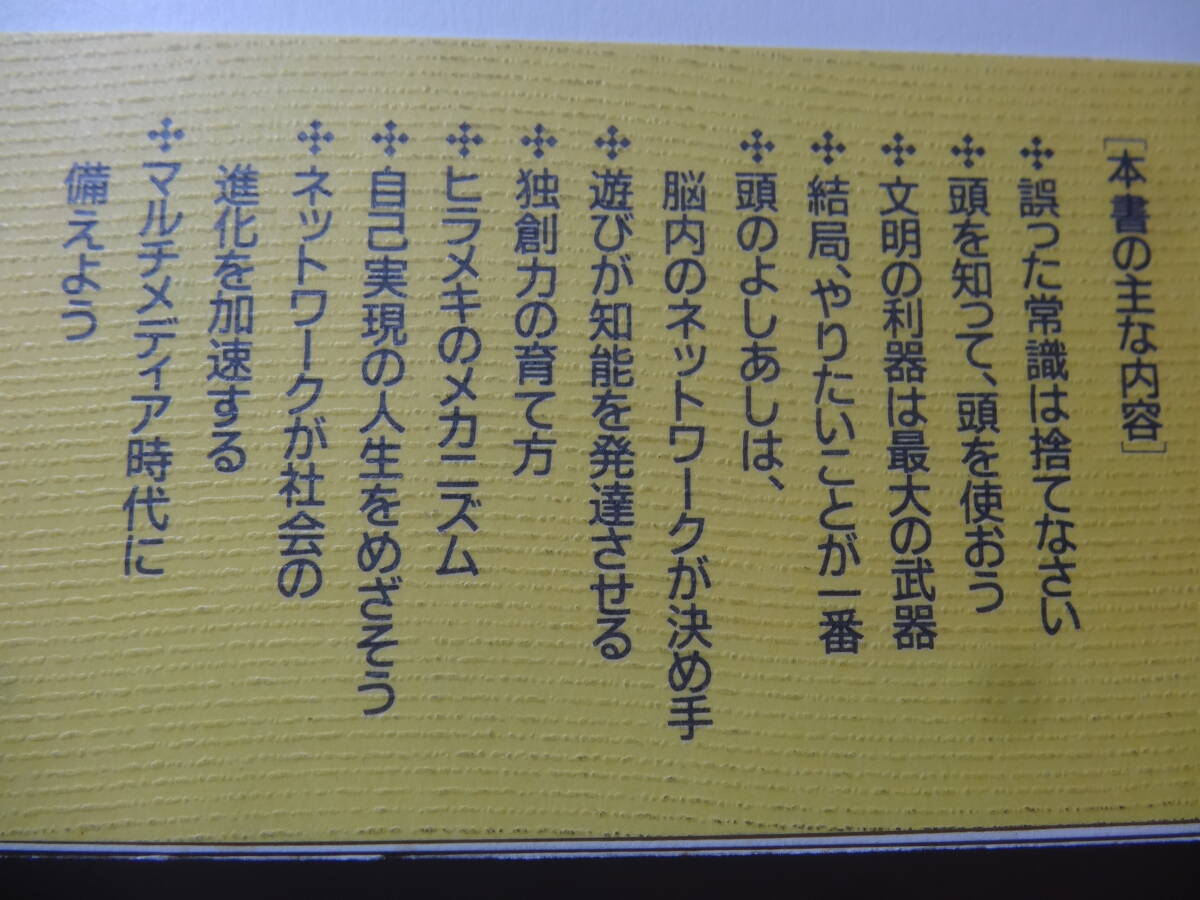 ［本書の主な内容］
✣誤った常識は捨てなさい
✣頭を知って、頭を使おう
✣文明の利器は最大の武器
✣結局、やりたいことが一番
✣頭のよしあしは、
脳内のネットワークが決め手
✣遊びが知能を発達させる
✣独創力の育て方
✣ヒラメキのメカニズム
✣自己実現の人生をめざそう
✣ネットワークが社会の
進化を加速する
✣マルチメディア時代に
備えよう